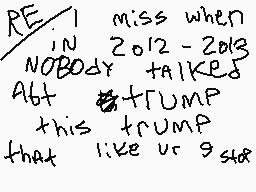 RE/ I miss when
iN 2012 - 2013
NOBODY tALKED
Abt trUMP
this trUMP
that like ur 9 stop